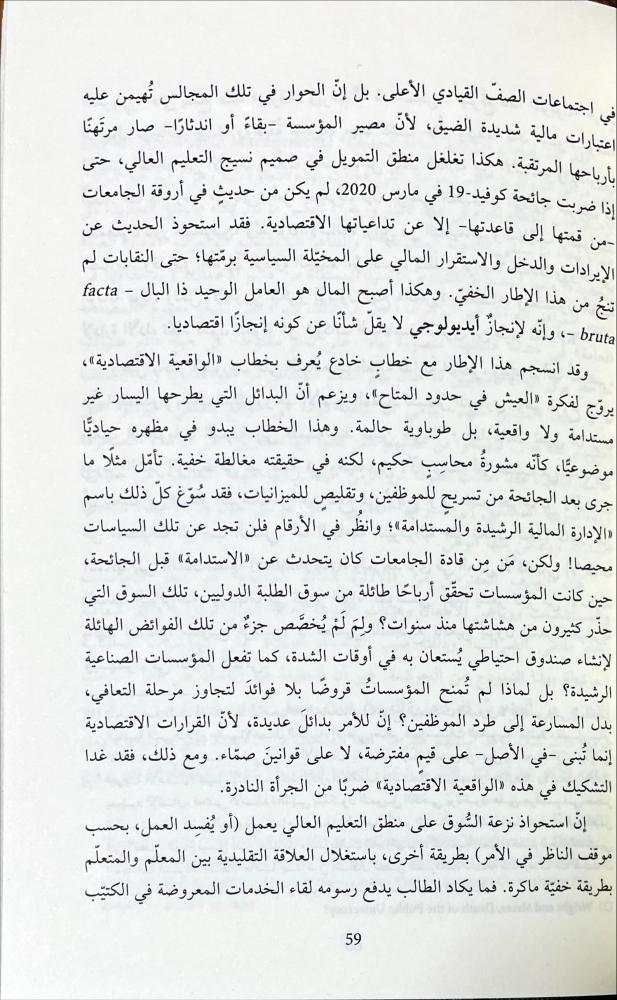 في اجتماعات الصفّ القيادي الأعلى. بل إنّ الحوار في تلك المجالس تُهيمن عليه
اعتبارات مالية شديدة الضيق، لأنّ مصير المؤسسة -بقاءً أو اندثارًا- صار مرتَهنًا
بأرباحها المرتقبة. هكذا تغلغل منطق التمويل في صميم نسيج التعليم العالي، حتى
إذا ضربت جائحة كوفيد-19 في مارس 2020، لم يكن من حديثٍ في أروقة الجامعات
-من قمتها إلى قاعدتها- إلا عن تداعياتها الاقتصادية. فقد استحوذ الحديث عن
الإيرادات والدخل والاستقرار المالي على المخيّلة السياسية برمّتها؛ حتى النقابات لم
تنجُ من هذا الإطار الخفيّ. وهكذا أصبح المال هو العامل الوحيد ذا البال – facta
bruta –، وإنّه لإنجازٌ أيديولوجي لا يقلّ شأنًا عن كونه إنجازًا اقتصاديا.
وقد انسجم هذا الإطار مع خطابٍ خادع يُعرف بخطاب «الواقعية الاقتصادية»،
يروّج لفكرة «العيش في حدود المتاح»، ويزعم أنّ البدائل التي يطرحها اليسار غير
مستدامة ولا واقعية، بل طوباوية حالمة. وهذا الخطاب يبدو في مظهره حياديًّا
موضوعيًّا، كأنّه مشورةُ محاسِبٍ حكيم، لكنه في حقيقته مغالطة خفية. تأمّل مثلًا ما
جرى بعد الجائحة من تسريحٍ للموظفين، وتقليصٍ للميزانيات، فقد سُوّغ كلّ ذلك باسم
«الإدارة المالية الرشيدة والمستدامة»؛ وانظُر في الأرقام فلن تجد عن تلك السياسات
محيصا! ولكن، مَن مِن قادة الجامعات كان يتحدث عن «الاستدامة» قبل الجائحة،
حين كانت المؤسسات تحقّق أرباحًا طائلة من سوق الطلبة الدوليين، تلك السوق التي
حذّر كثيرون من هشاشتها منذ سنوات؟ ولِمَ لَمْ يُخصَّص جزءٌ من تلك الفوائض الهائلة
لإنشاء صندوق احتياطي يُستعان به في أوقات الشدة، كما تفعل المؤسسات الصناعية
الرشيدة؟ بل لماذا لم تُمنح المؤسساتُ قروضًا بلا فوائدَ لتجاوز مرحلة التعافي،
بدل المسارعة إلى طرد الموظفين؟ إنّ للأمر بدائلَ عديدة، لأنّ القرارات الاقتصادية
إنما تُبنى -في الأصل- على قيمٍ مفترضة، لا على قوانينَ صمّاء. ومع ذلك، فقد غدا
التشكيك في هذه «الواقعية الاقتصادية» ضربًا من الجرأة النادرة.
إنّ استحواذ نزعة السُّوق على منطق التعليم العالي يعمل (أو يُفسِد العمل، بحسب
موقف الناظر في الأمر) بطريقة أخرى، باستغلال العلاقة التقليدية بين المعلّم والمتعلّم
بطريقة خفيّة ماكرة. فما يكاد الطالب يدفع رسومه لقاء الخدمات المعروضة في الكتيّب
59